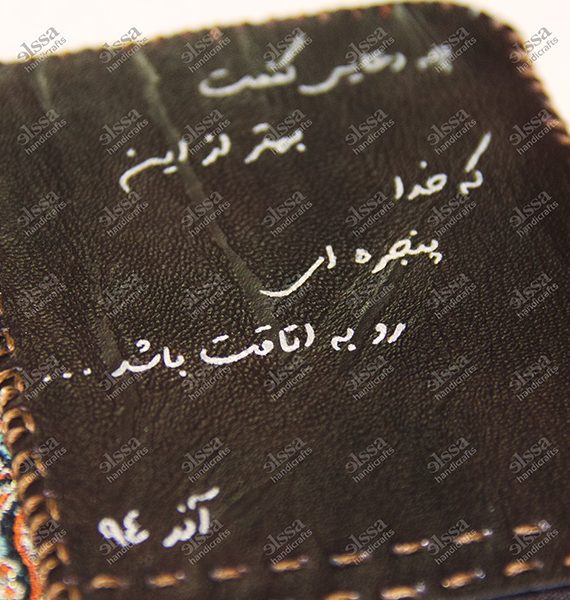 چه دعایی کنمت
بهتر از این
که خدا
پنجره ای
رو به اتاقت باشد ...
آذر ۹٤
elssa
handicrafts